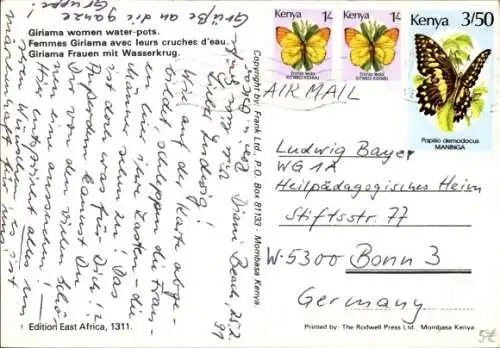 Grüße an die ganze
Gruppe!
Giriama women water-pots.
Femmes Giriama avec leurs cruches d'eau.
Giriama Frauen mit Wasserkrug.
Diani Beach, 21.2.
91
Lieber Ludwig!
Wie auf der Karte abge-
bildet schleppen die Frau-
en hier ihre Lasten – die
Männer sehen zu! Das
wär' doch was für Dich!?
Außerdem kannst Du
Dir von den vielen
eine aussuchen!
entspricht alles
Edition East Africa, 1311.
Copyright by: Frank Ltd. P.O. Box 81133 - Mombasa Kenya.
Kenya 1/-
Kenya 1/-
Kenya 3/50
Papilio demodocus
MANINGA
AIR MAIL
Ludwig Bayer
WG 1A
Heilpädagogisches Heim
Stiftsstr. 77
W-5300 Bonn 3
Germany
Printed by: The Rodwell Press Ltd., Mombasa Kenya